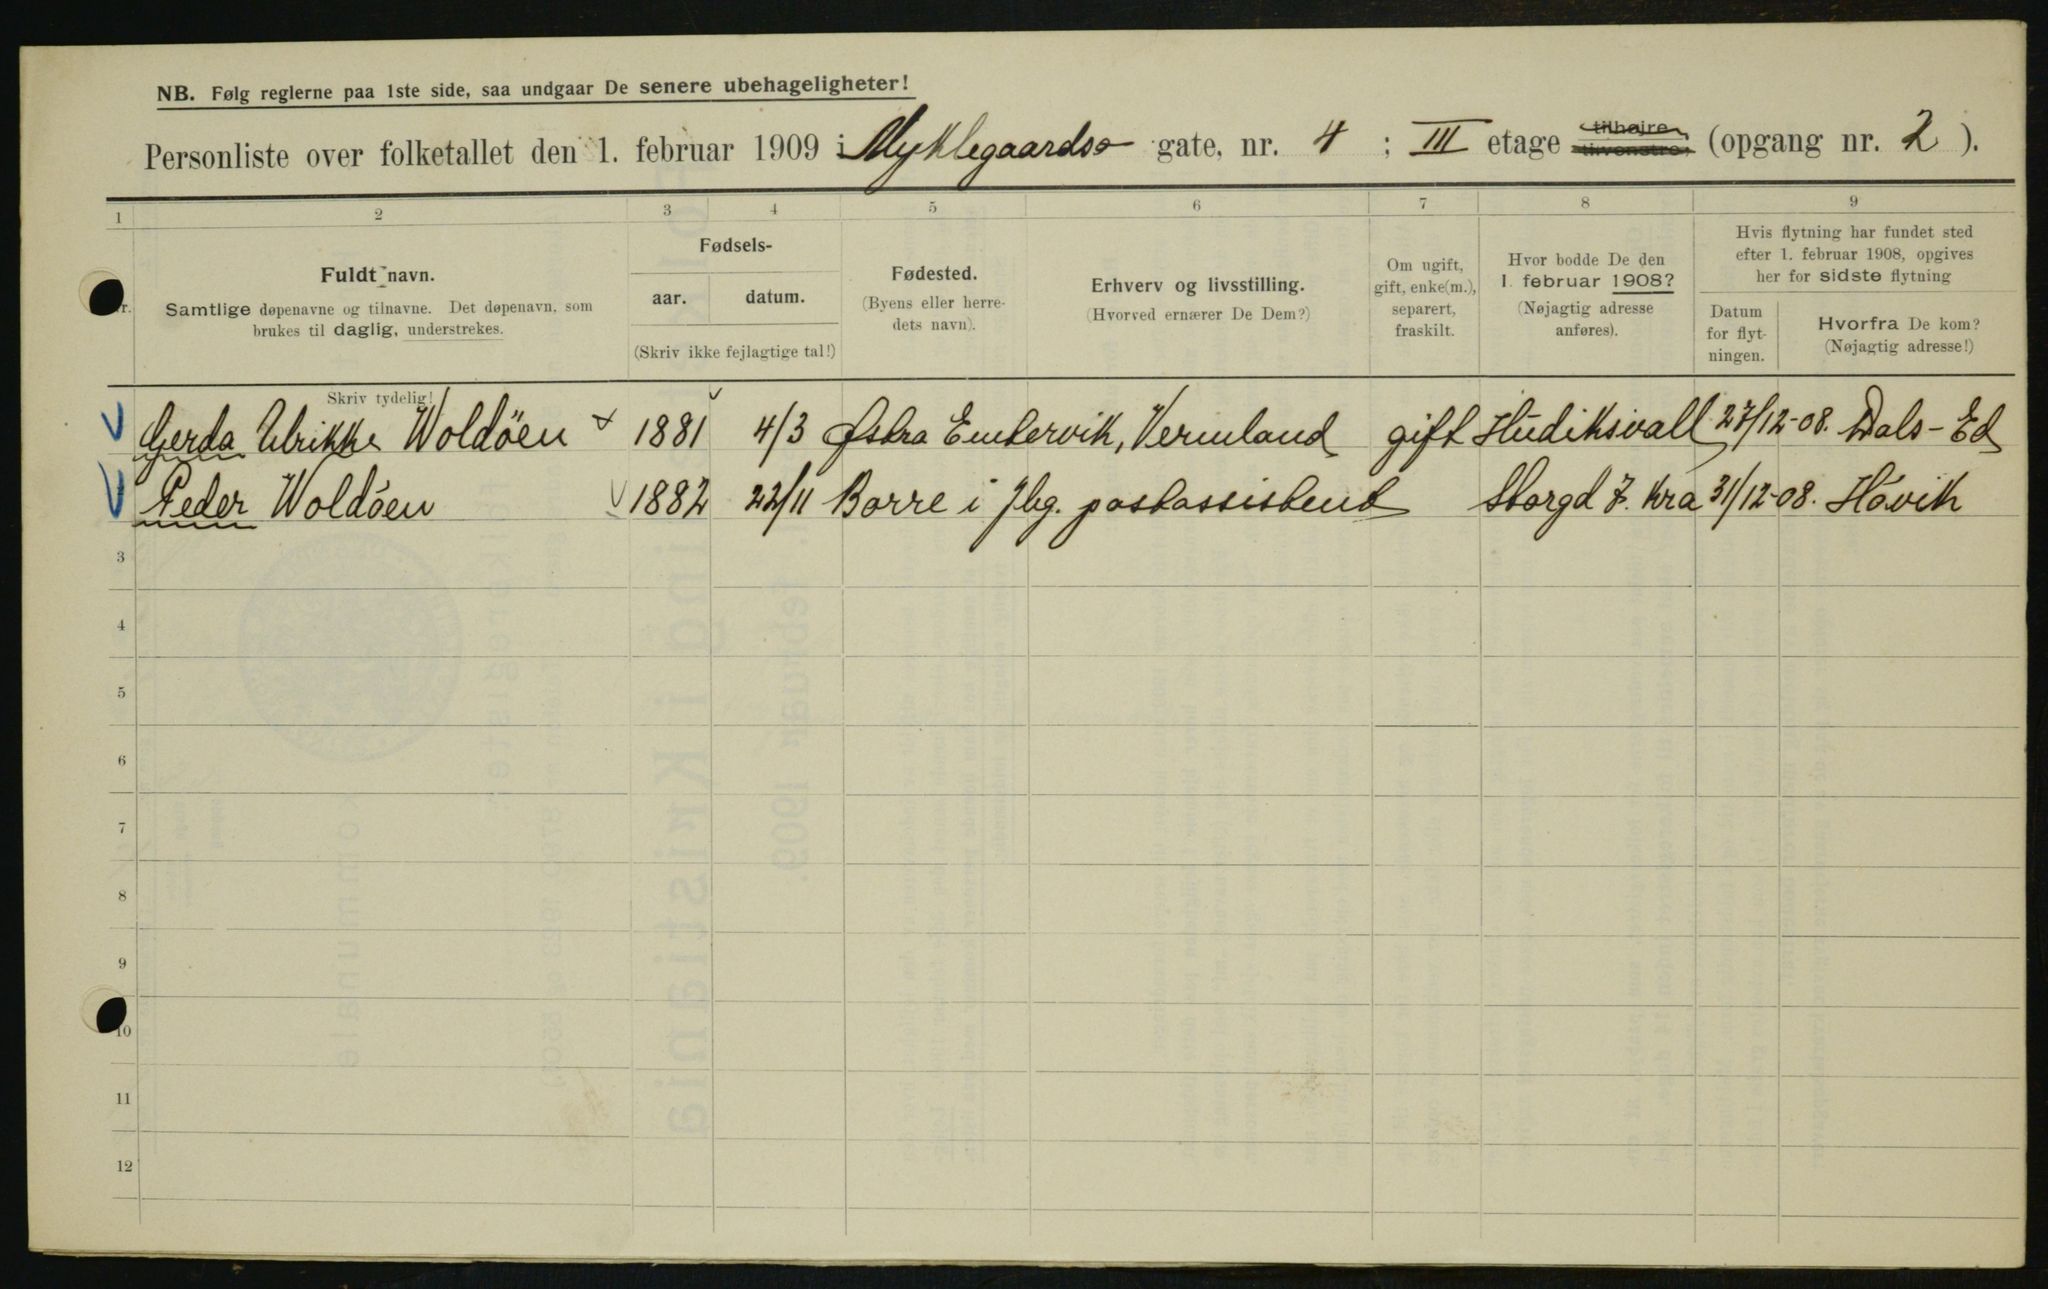 NB. Følg reglerne paa 1ste side, saa undgaar De senere ubehageligheter!
Personliste over folketallet den 1. februar 1909 i Myklegaards gate, nr. 4 ; III etage tilhøire tilvenstre, (opgang nr. 2 ).
1 2 3 4 5 6 7 8 9
Fuldt navn.
Samtlige døpenavne og tilnavne. Det døpenavn, som
brukes til daglig, understrekes.
Fødsels-
aar. datum.
(Skriv ikke fejlagtige tal!)
Fødested.
(Byens eller herre-
dets navn).
Erhverv og livsstilling.
(Hvorved ernærer De Dem?)
Om ugift,
gift, enke(m.),
separert,
fraskilt.
Hvor bodde De den
1. februar 1908?
(Nøjagtig adresse
anføres).
Hvis flytning har fundet sted
efter 1. februar 1908, opgives
her for sidste flytning
Datum
for flyt-
ningen.
Hvorfra De kom?
(Nøjagtig adresse!)
Skriv tydelig!
Gerda Ulrikke Woldöen 1881 4/3 Østra Emtervik, Vermland gift Hudiksvall 27/12-08. Dals-Ed
Peder Woldöen 1882 22/11 Borre i Jbg. postassistent Storgd 7. Kra 31/12-08. Hövik
3
4
5
6
7
8
9
10
11
12